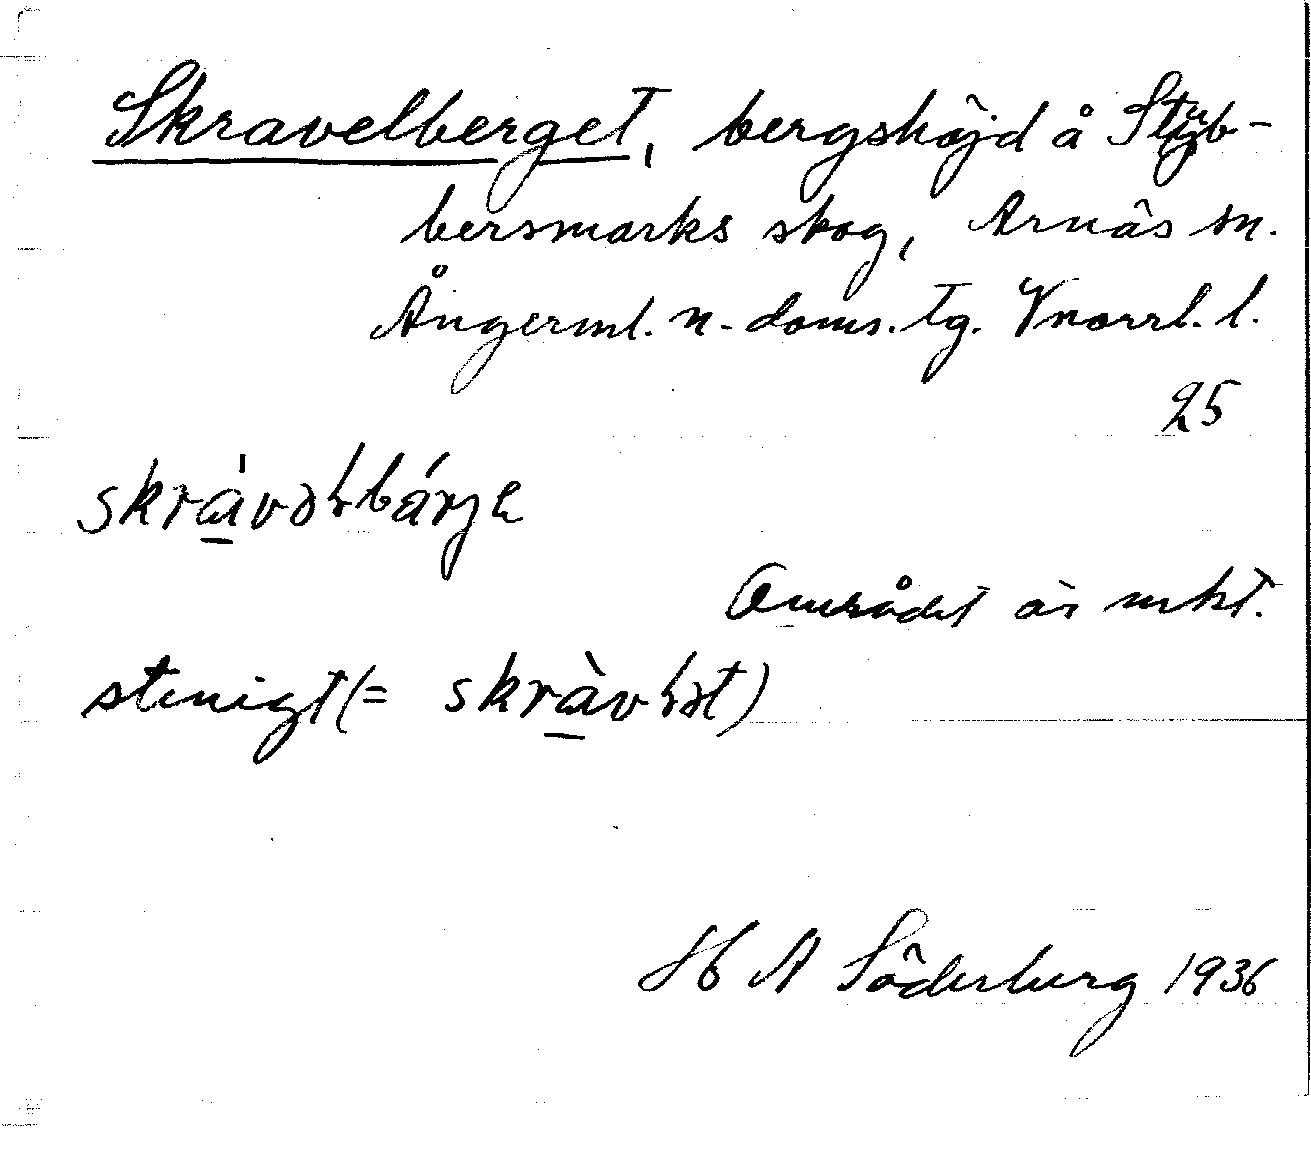 Skravelberget, bergshöjd å Stub-
bersmarks skog, Arnäs sn.
Ångerml. n. doms. tg. Vnorrl. l.
25
skràvəɽbárje
Området är mkt.
stenigt (= skràvɽət)
H A Söderberg 1936